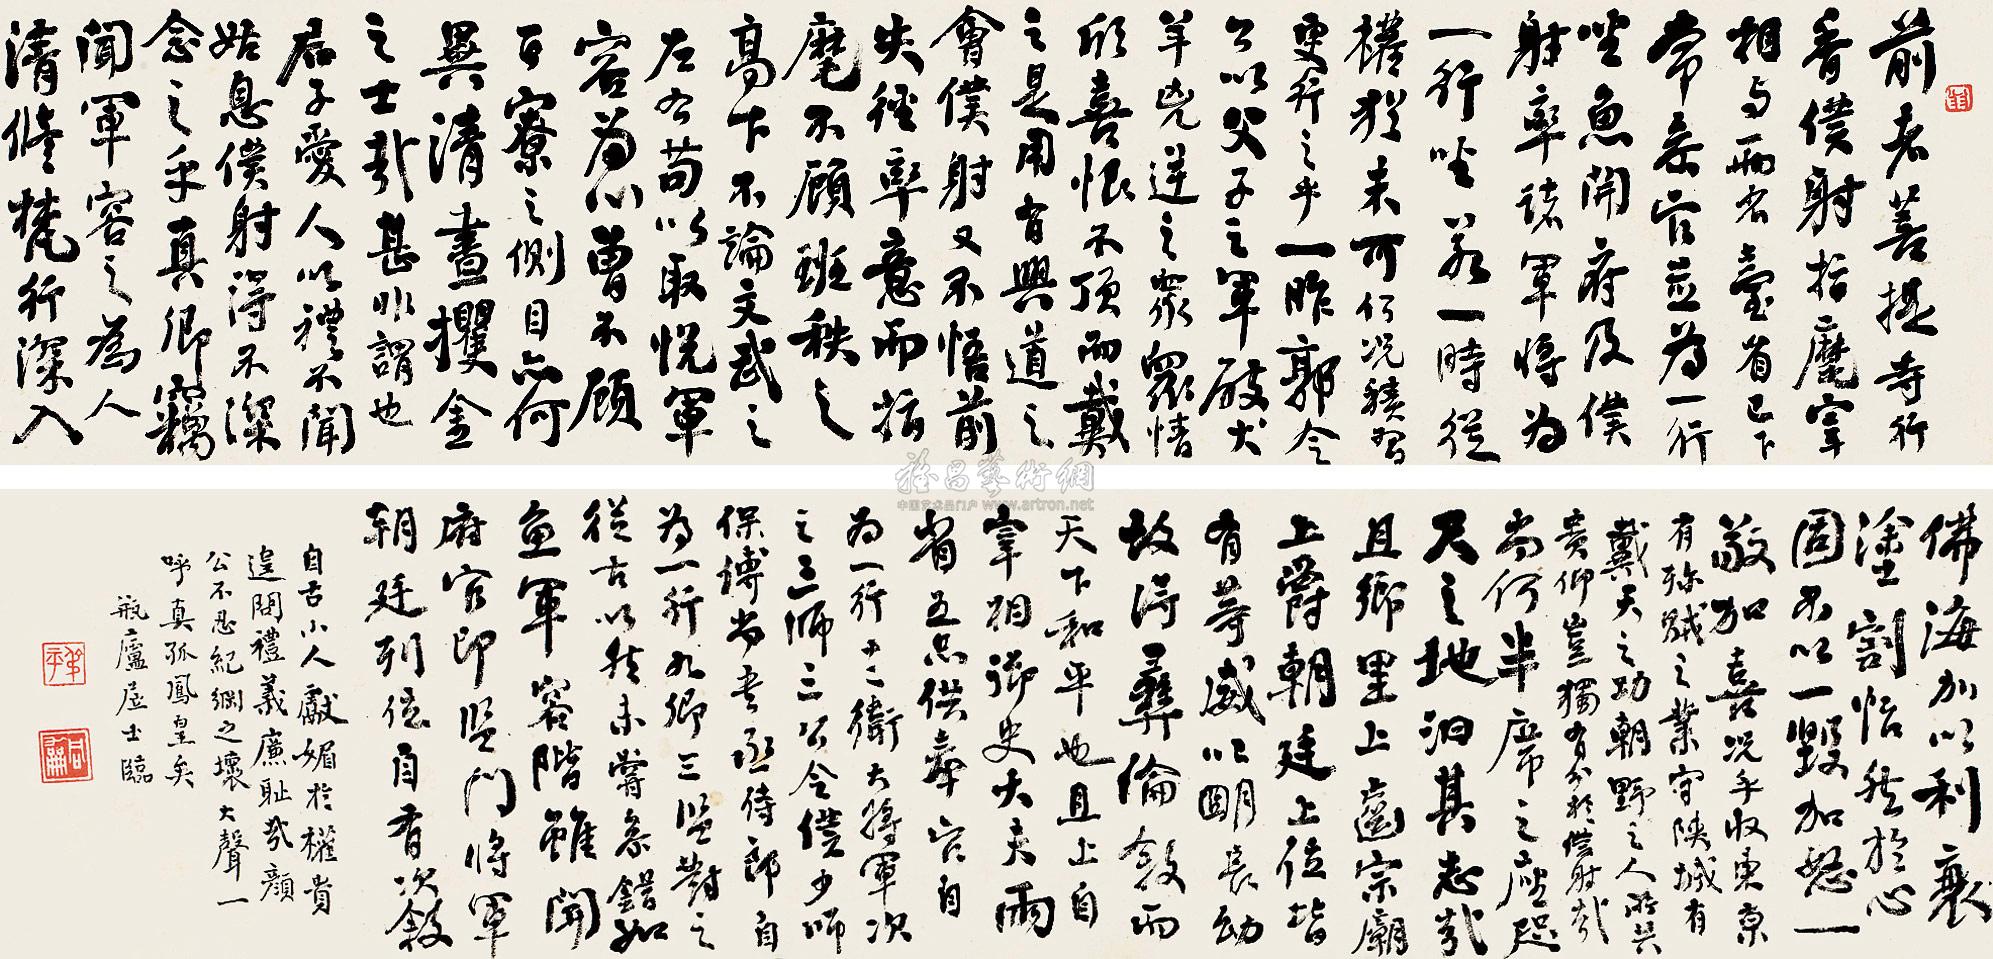 前者菩提寺行
香僕射指麾宰
相与兩省臺省已下
常參官並為一行
坐魚開府及僕
射率諸軍將為
一行坐若一時從
權猶未可何況積習
更行之乎一昨郭令
公以父子之軍破犬
羊兇逆之眾眾情
欣喜恨不頂而戴
之是用有興道之
會僕射又不悟前
失徑率意而指
麾不顧班秩之
高下不論文武之
左右苟以取悅軍
容為心曾不顧
百寮之側目亦何
異清晝攫金
之士哉甚非謂也
君子愛人以禮不聞
姑息僕射得不深
念之乎真卿竊
聞軍容之為人
清修梵行深入
佛海加以利衰
塗割恬然於心
固不以一毀加怒一
敬加喜況乎收東京
有殄賊之業守陝城有
戴天之功朝野之人所共
貴仰豈獨有分於僕射哉
尚何半席之座咫
尺之地汨其志哉
且鄉里上齒宗廟
上爵朝廷上位皆
有等威以明長幼
故得彝倫敘而
天下和平也且上自
宰相御史大夫兩
省五品供奉官自
為一行十二衛大將軍次
之三師三公令僕少師
保傅尚書丞侍郎自
為一行九卿三監對之
從古以然未嘗參錯如
魚軍容階雖開
府官即監門將軍
朝廷列位自有次敘
自古小人獻媚於權貴
遑問禮義廉恥哉顏
公不忍紀綱之壞大聲一
呼真孤鳳皇矣
瓶廬居士臨
雅昌藝術網
中国艺术品门户 www.artron.net